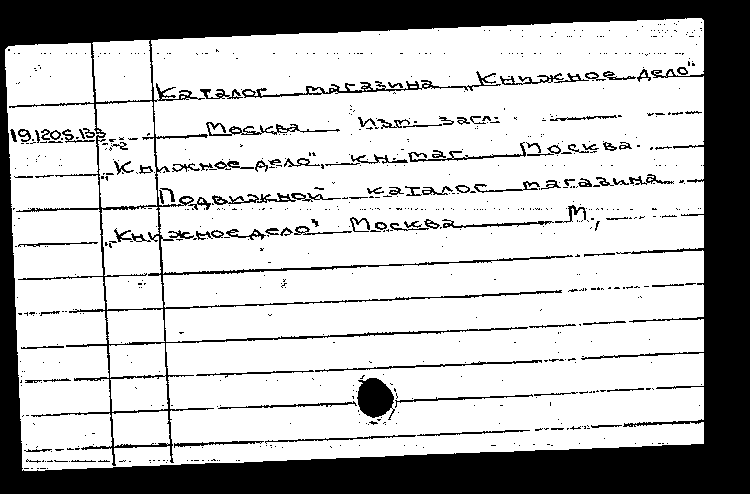 Каталог магазина „Книжное дело"
19.120.5.133
Москва Изм. загл.
„Книжное дело", кн. маг. Москва.
Подвижной каталог магазина
„Книжное дело" Москва М.,